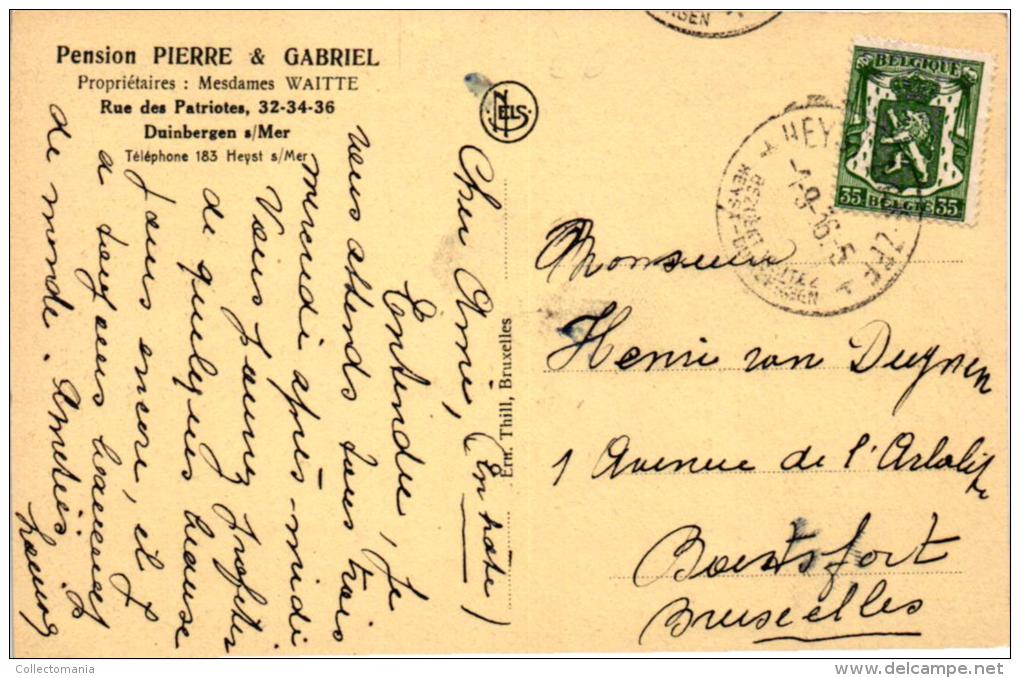 Pension PIERRE & GABRIEL
Propriétaires : Mesdames WAITTE
Rue des Patriotes, 32-34-36
Duinbergen s/Mer
Téléphone 183 Heyst s/Mer
NELS
Ern. Thill, Bruxelles
BELGIQUE
35 BELGIE 35
HEYST
Cher Ami, (En hâte)
Entendu, je
vous attends tous trois
mercredi après-midi
Vous pourrez profiter
de quelques beaux
jours encore, il
a toujours beaucoup
de monde. Amitiés
Monsieur
Henri van
1 Avenue de l'
Boitsfort
Bruxelles
Collectomania
delcampe.net